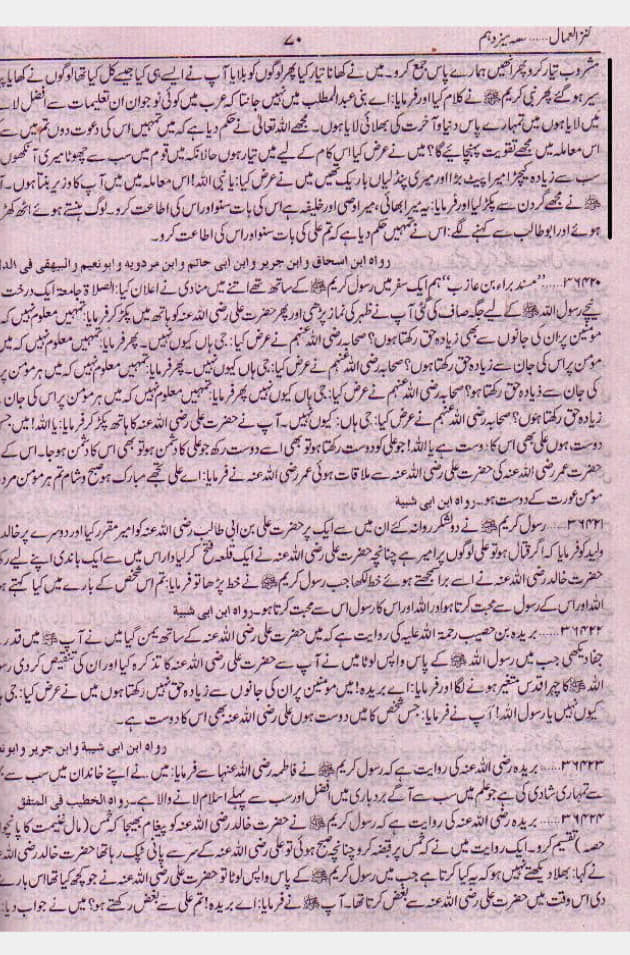 کنز العمال ...... حصہ سیزدہم ۷۰
مشروب تیار کرو پھر انھیں ہمارے پاس جمع کرو۔ میں نے کھانا تیار کیا پھر لوگوں کو بلایا آپ نے ایسے ہی کیا جیسے کل کیا تھا لوگوں نے کھایا پیا
سیر ہو گئے پھر نبی کریم ﷺ نے کلام کیا اور فرمایا: اے بنی عبدالمطلب میں نہیں جانتا کہ عرب میں کوئی نوجوان ان تعلیمات سے افضل لائے
میں لایا ہوں میں تمہارے پاس دنیا و آخرت کی بھلائی لایا ہوں۔ مجھے اللہ تعالیٰ نے حکم دیا ہے کہ میں تمہیں اس کی دعوت دوں تم میں سے
اس معاملہ میں مجھے تقویت پہنچائے گا؟ میں نے عرض کیا اس کام کے لیے میں تیار ہوں حالانکہ میں قوم میں سب سے چھوٹا میری آنکھوں
سب سے زیادہ کیچڑ میرا پیٹ بڑا اور میری پنڈلیاں باریک تھیں میں نے عرض کیا: یا نبی اللہ! اس معاملہ میں میں آپ کا وزیر بنتا ہوں۔
ﷺ نے مجھے گردن سے پکڑ لیا اور فرمایا: یہ میرا بھائی، میرا وصی اور خلیفہ ہے اس کی بات سنو اور اس کی اطاعت کرو۔ لوگ ہنستے ہوئے اٹھ کھڑے
ہوئے اور ابوطالب سے کہنے لگے: اس نے تمہیں حکم دیا ہے کہ تم علی کی بات سنو اور اس کی اطاعت کرو۔
رواہ ابن اسحاق وابن جریر وابن ابی حاتم وابن مردویہ وابونعیم والبیهقی فی الدلا
۳۶۴۲۰..... ”مسند براء بن عازب“ ہم ایک سفر میں رسول کریم ﷺ کے ساتھ تھے اتنے میں منادی نے اعلان کیا: الصلاۃ جامعۃ ایک درخت
نیچے رسول اللہ ﷺ کے لیے جگہ صاف کی گئی آپ نے ظہر کی نماز پڑھی اور پھر حضرت علی رضی اللہ عنہ کو ہاتھ میں پکڑ کر فرمایا: تمہیں معلوم نہیں کہ
مومنین پر ان کی جانوں سے بھی زیادہ حق رکھتا ہوں؟ صحابہ رضی اللہ عنہم نے عرض کیا: جی ہاں کیوں نہیں۔ پھر فرمایا: تمہیں معلوم نہیں کہ میں
مومن پر اس کی جان سے زیادہ حق رکھتا ہوں؟ صحابہ رضی اللہ عنہم نے عرض کیا: جی ہاں کیوں نہیں۔ پھر فرمایا: تمہیں معلوم نہیں کہ میں ہر مومن پر
کی جان سے زیادہ حق رکھتا ہو؟ صحابہ رضی اللہ عنہم نے عرض کیا: جی ہاں کیوں نہیں پھر فرمایا: تمہیں معلوم نہیں کہ میں ہر مومن پر اس کی جان
زیادہ حق رکھتا ہوں؟ صحابہ رضی اللہ عنہم نے عرض کیا: جی ہاں: کیوں نہیں۔ آپ نے حضرت علی رضی اللہ عنہ کا ہاتھ پکڑ کر فرمایا: یا اللہ! میں جس
دوست ہوں علی بھی اس کا دوست ہے یا اللہ! جو علی کو دوست رکھتا ہو تو بھی اسے دوست رکھ جو علی کا دشمن ہو تو بھی اس کا دشمن ہو جا۔ اس کے
حضرت عمر رضی اللہ عنہ کی حضرت علی رضی اللہ عنہ سے ملاقات ہوئی عمر رضی اللہ عنہ نے فرمایا: اے علی تجھے مبارک ہو صبح و شام تم ہر مومن مرد
مومن عورت کے دوست ہو۔ رواہ ابن ابی شیبة
۳۶۴۲۱..... رسول کریم ﷺ نے دو لشکر روانہ کئے ان میں سے ایک پر حضرت علی بن ابی طالب رضی اللہ عنہ کو امیر مقرر کیا اور دوسرے پر خالد
ولید کو فرمایا کہ اگر قتال ہو تو علی لوگوں پر امیر ہے چنانچہ حضرت علی رضی اللہ عنہ نے ایک قلعہ فتح کر لیا اور اس میں سے ایک باندی اپنے لیے رکھ
حضرت خالد رضی اللہ عنہ نے اسے برا سمجھتے ہوئے خط لکھا جب رسول کریم ﷺ نے خط پڑھا تو فرمایا: تم اس شخص کے بارے میں کیا کہتے ہو
اللہ اور اس کے رسول سے محبت کرتا ہو اور اللہ اور اس کا رسول اس سے محبت کرتا ہو۔ رواہ ابن ابی شیبة
۳۶۴۲۲..... بریدہ بن حصیب رحمۃ اللہ علیہ کی روایت ہے کہ میں حضرت علی رضی اللہ عنہ کے ساتھ یمن گیا میں نے آپ ﷺ میں قدر
جفا دیکھی جب میں رسول اللہ ﷺ کے پاس واپس لوٹا میں نے آپ سے حضرت علی رضی اللہ عنہ کا تذکرہ کیا اور ان کی تنقیص کر دی رسو
اللہ ﷺ کا چہرا قدس متغیر ہونے لگا اور فرمایا: اے بریدہ! میں مومنین پر ان کی جانوں سے زیادہ حق نہیں رکھتا ہوں میں نے عرض کیا: جی
کیوں نہیں یا رسول اللہ! آپ نے فرمایا: جس شخص کا میں دوست ہوں علی رضی اللہ عنہ بھی اس کا دوست ہے۔
رواہ ابن ابی شیبة وابن جریر وابونعیم
۳۶۴۲۳..... بریدہ رضی اللہ عنہ کی روایت ہے کہ رسول کریم ﷺ نے فاطمہ رضی اللہ عنہا سے فرمایا: میں نے اپنے خاندان میں سب سے
سے تمہاری شادی کی ہے جو علم میں سب سے آگے بردباری میں افضل اور سب سے پہلے اسلام لانے والا ہے۔ رواہ الخطیب فی المتفق
۳۶۴۲۴..... بریدہ رضی اللہ عنہ کی روایت ہے کہ رسول کریم ﷺ نے حضرت خالد رضی اللہ عنہ کو پیغام بھیجا کہ خمس (مال غنیمت کا پانچواں
حصہ) تقسیم کرو۔ ایک روایت میں ہے کہ خمس پر قبضہ کرو چنانچہ صبح ہوئی تو علی رضی اللہ عنہ کے سر سے پانی ٹپک رہا تھا حضرت خالد رضی اللہ
نے کہا: بھلا دیکھتے نہیں ہو کہ یہ کیا کرتا ہے جب میں رسول کریم ﷺ کے پاس واپس لوٹا تو حضرت علی رضی اللہ عنہ نے جو کچھ کیا تھا اس بارے
دی اس وقت میں حضرت علی رضی اللہ عنہ سے بغض کرتا تھا۔ آپ ﷺ نے فرمایا: اے بریدہ! تم علی سے بغض رکھتے ہو؟ میں نے جواب دیا: